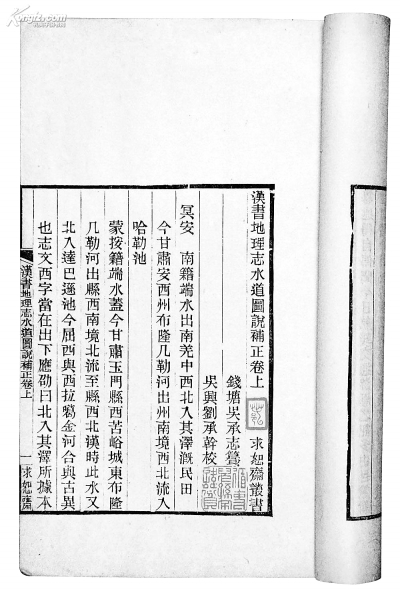 漢書地理志水道圖說補正卷上 求恕齋叢書
錢塘吳承志譔
吳興劉承幹校
冥安 南籍端水出南羌中西北入其澤溉民田
今甘肅安西州布隆几勒河出州南境西北流入
哈勒池
蒙按籍端水蓋今甘肅玉門縣西苦峪城東布隆
几勒河出縣西南境北流至縣西北漢時此水又
北入達巴遜池今屈西與西拉噶金河合與古異
也志文西字當在出下應劭曰北入其澤所據本
漢書地理志水道圖說補正卷上 一 求恕齋
Kongfz.com